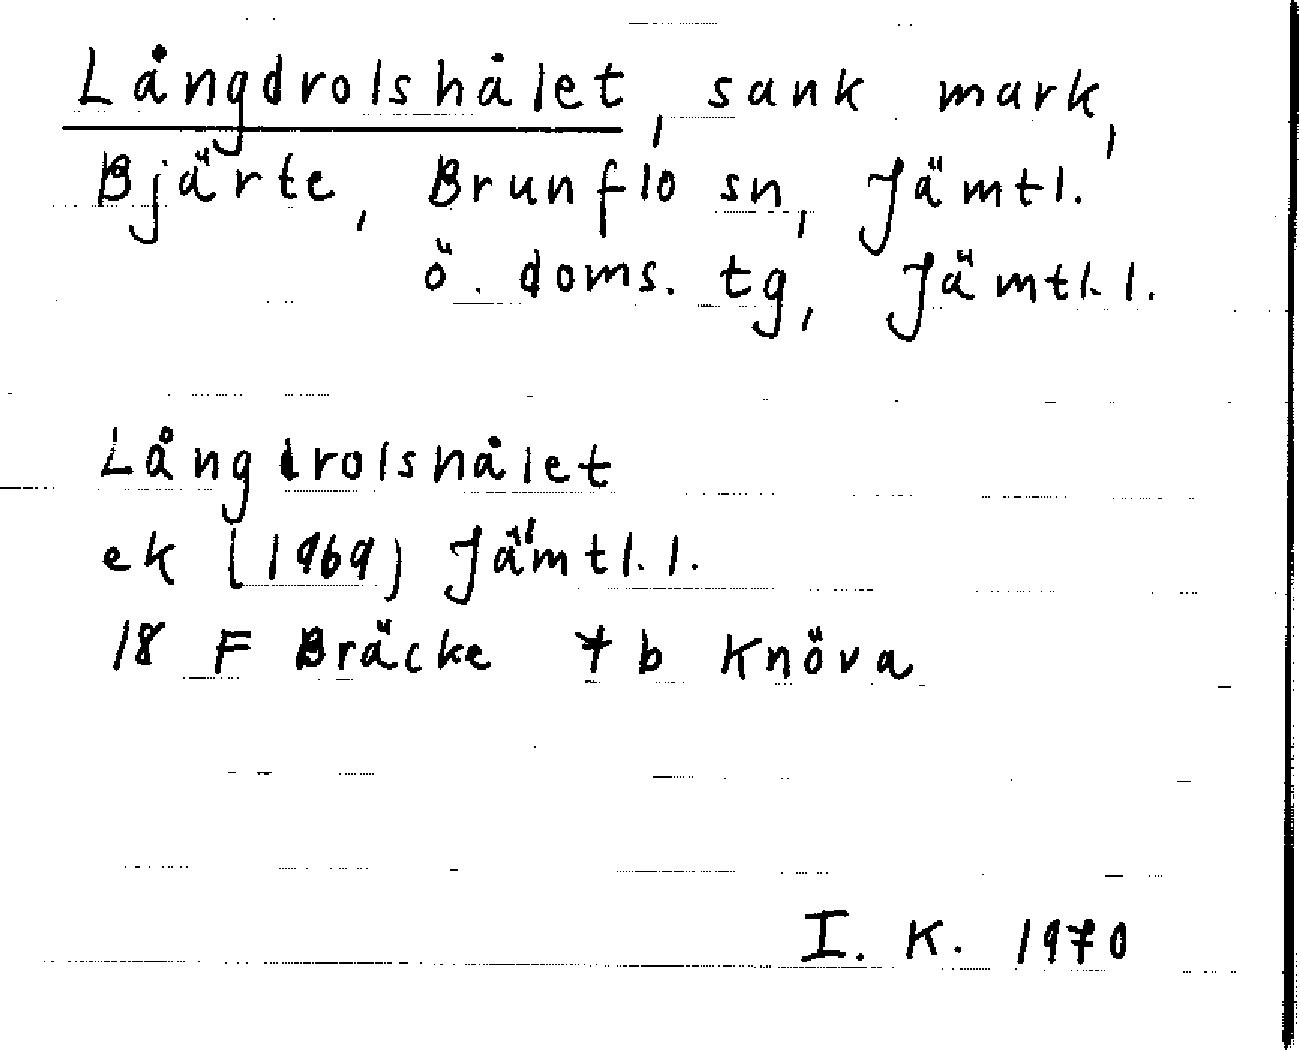 Långdrolshålet, sank mark,
Bjärte, Brunflo sn, Jämtl.
ö. doms. tg, Jämtl. l.
Långdrolshålet
ek (1969) Jämtl. l.
18 F Bräcke 7 b Knöva
I. K. 1970